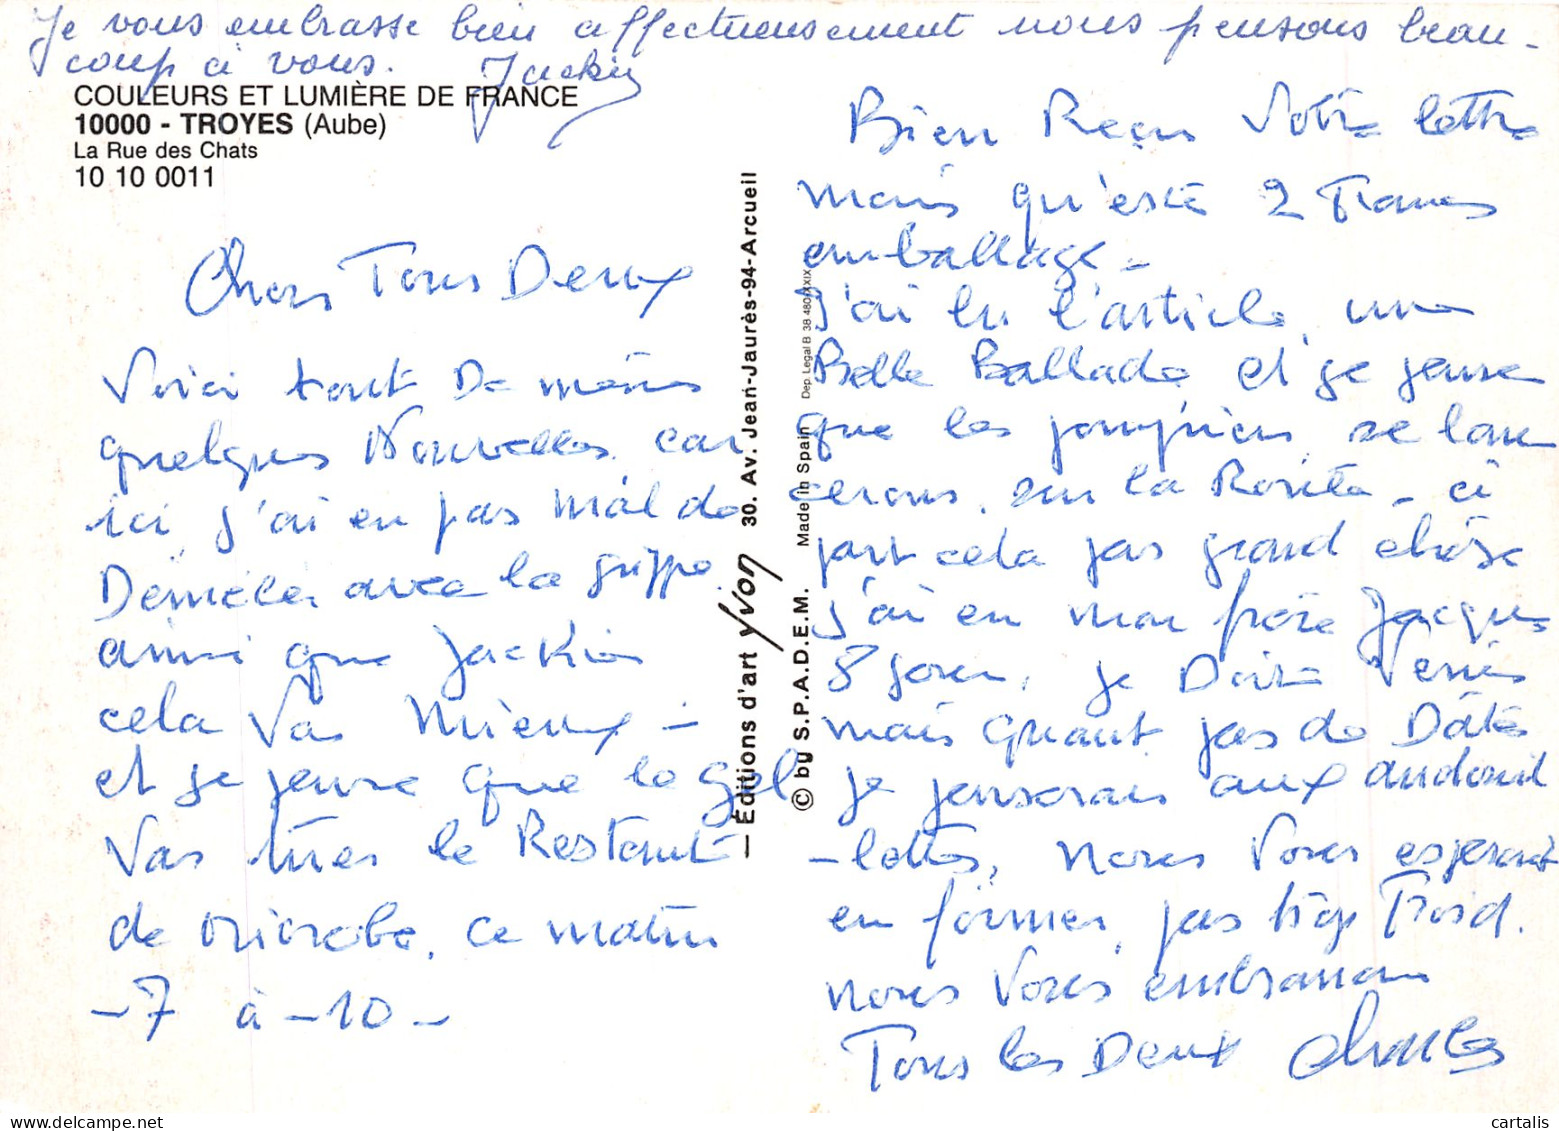 Je vous embrasse bien affectueusement nous pensons beau-
coup à vous. Jackie
COULEURS ET LUMIÈRE DE FRANCE
10000 - TROYES (Aube)
La Rue des Chats
10 10 0011
Chers Tous Deux
Voici tout De même
quelques Nouvelles car
ici j'ai eu pas mal de
Démêlés avec la grippe
ainsi que Jackie
cela Vas Mieux -
et je pense que le gel
Vas tuer le Restant
de microbe, ce matin
-7 à -10-
— Éditions d'art yvon 30. Av. Jean-Jaurès-94-Arcueil
© by S.P.A.D.E.M. Made in Spain Dep. Legal B 38 480-XXIX
Bien Reçu Votre lettre
mais qu'este 2 Francs
emballage -
J'ai lu l'article, une
Belle Ballade et je pense
que les pompiers se lan
cerons, sur la Rosita - ci
part cela pas grand chose
j'ai eu mon frère Jacques
8 jours, je Dois Venir
mais quant pas de Date
je penserais aux andouil
-lettes, nous Vous esperont
en forme, pas trop Froid.
nous Vous embrassons
Tous les Deux Charles
cartalis